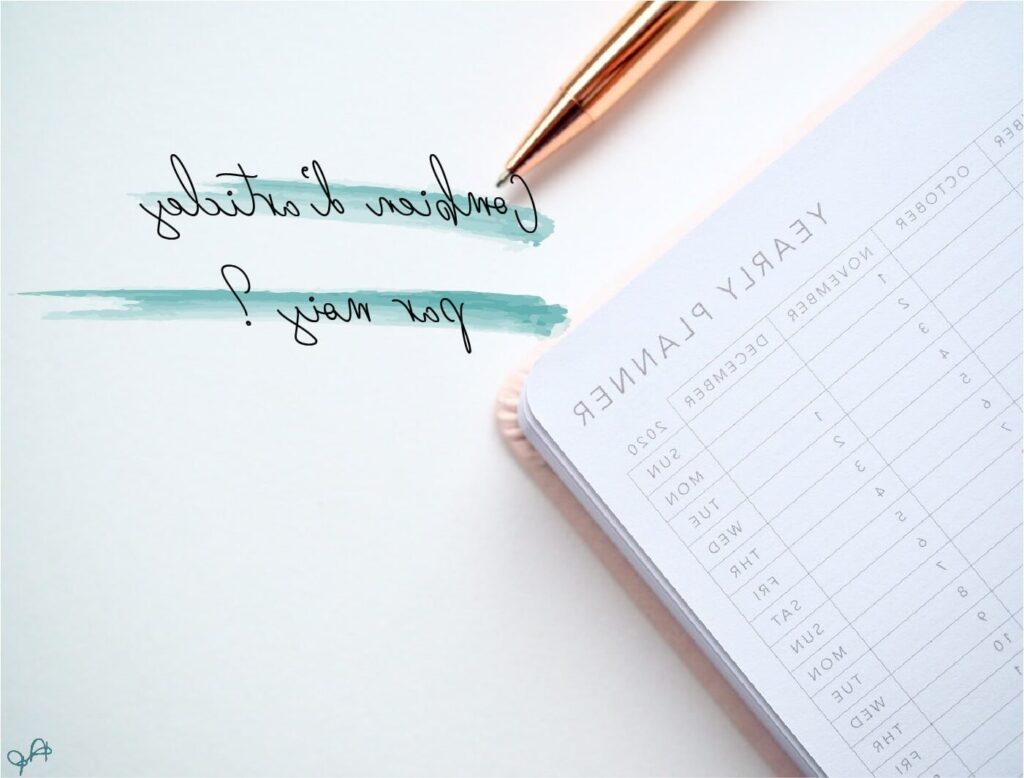 Combien d'articles
par mois?
YEARLY PLANNER
2020 DECEMBER NOVEMBER OCTOBER
SUN 1
MON 2
TUE 1 3
WED 2 4
THR 3 5
FRI 4 6
SAT 5 7
SUN 6
MON 7
TUE 8
WED 9
THR 10
FRI